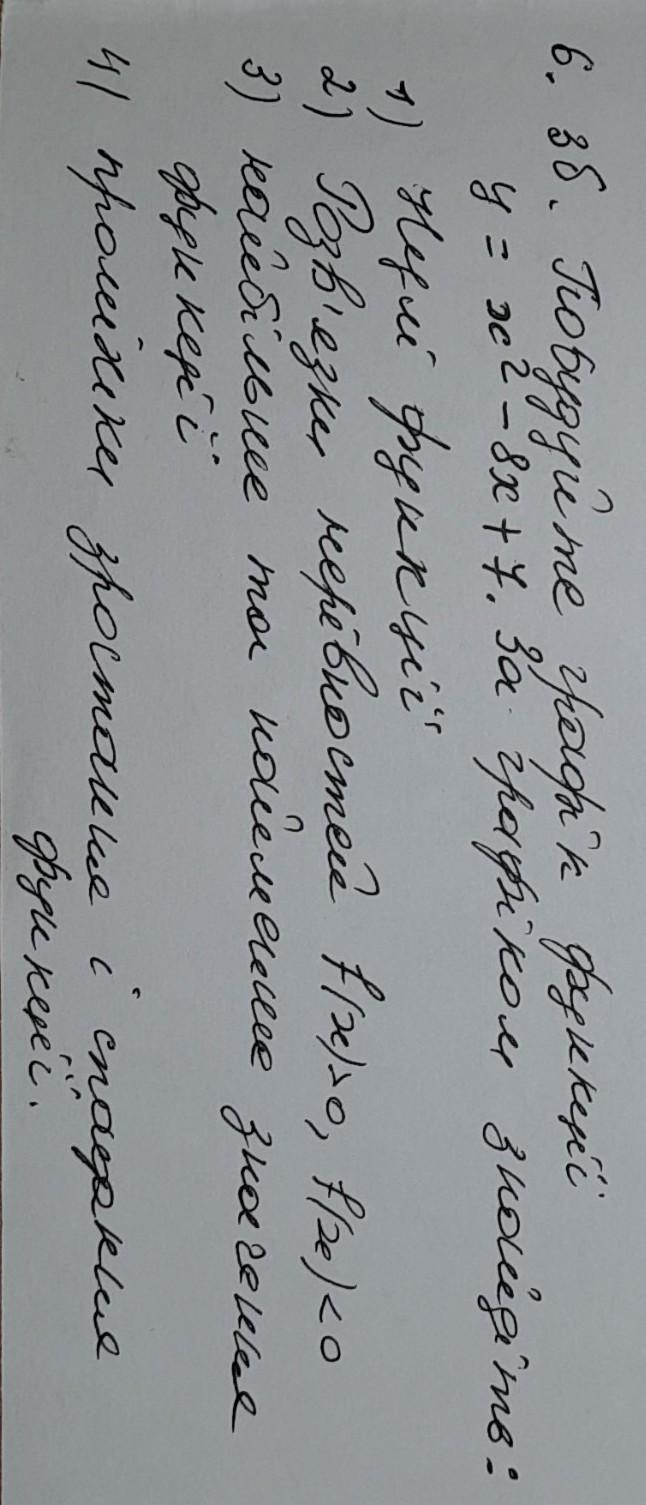 6. 3б. Побудуйте графік функції
y = x² - 8x + 7. За графіком знайдіть:
1) Нулі функції
2) Розв'язки нерівностей f(x)>0, f(x)<0
3) найбільше та найменше значення
функції
4) проміжки зростання і спадання
функції.